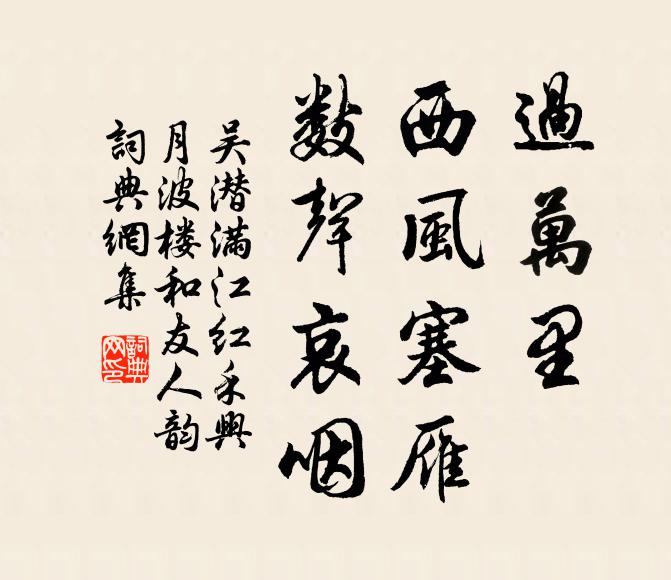 過萬里
西風塞雁
數聲哀咽
吴潜满江红禾興
月波楼和友人韵
詞典網集
詞典網印